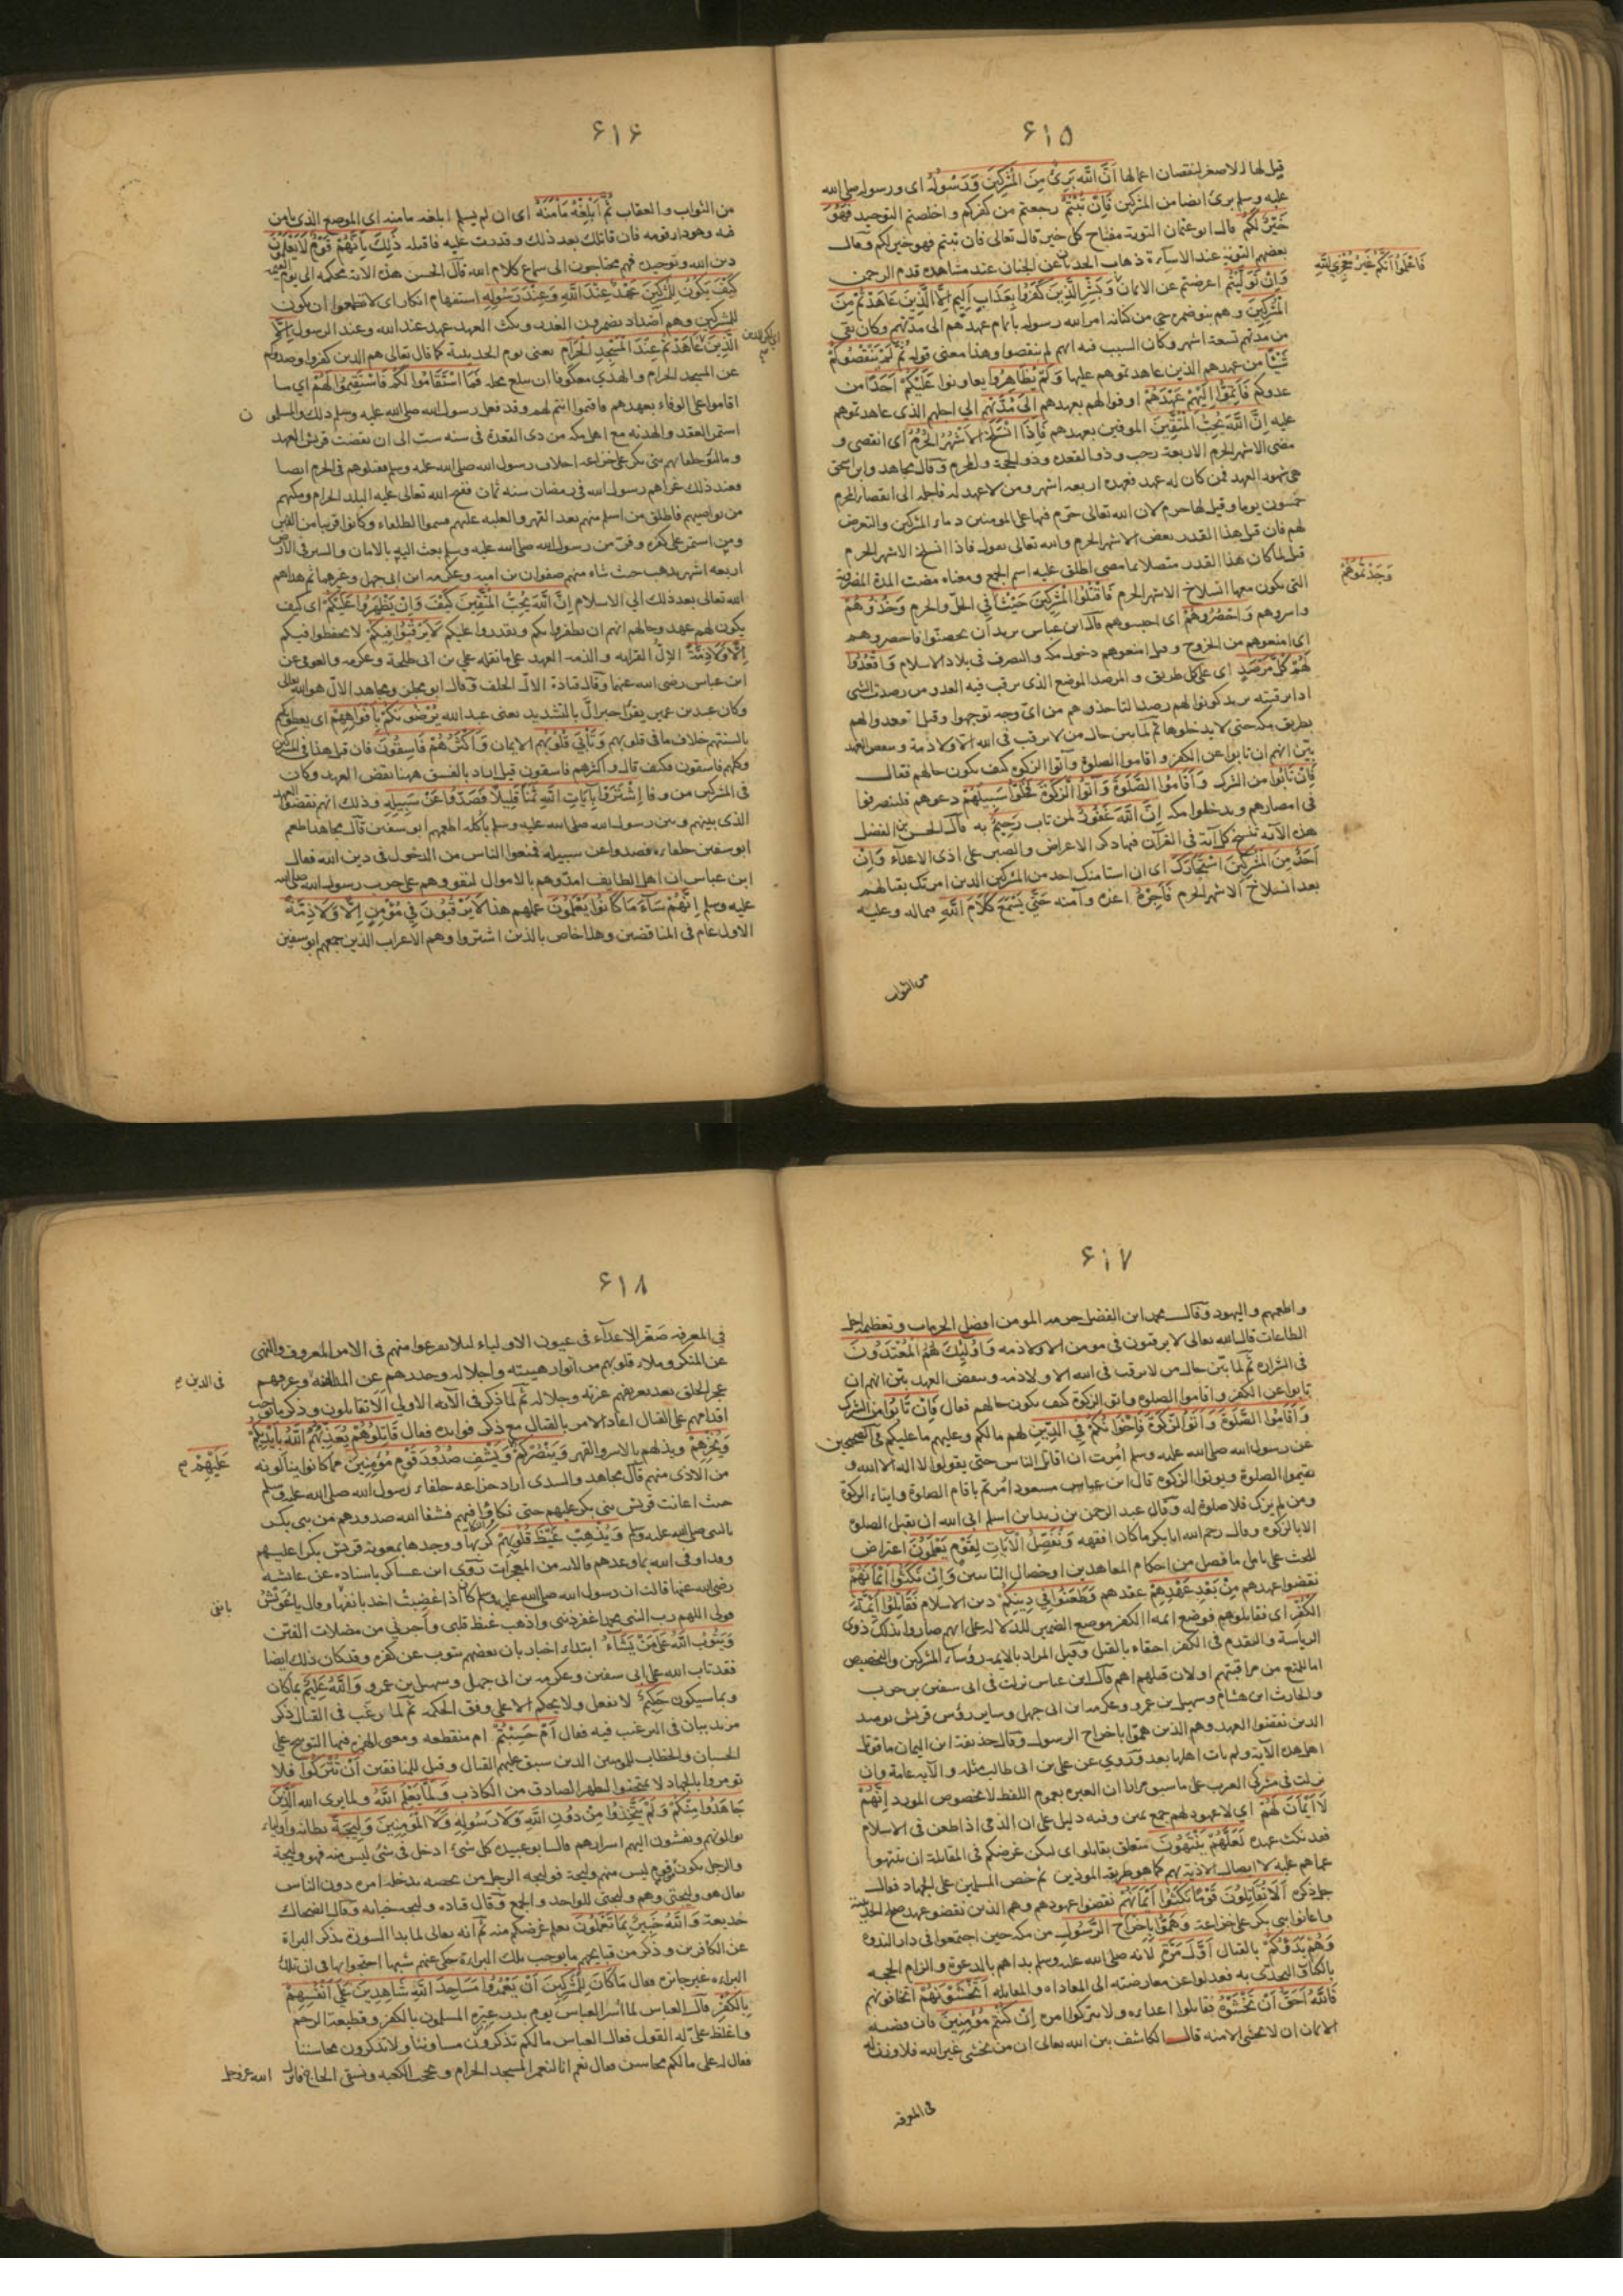 ٦١٥
قيل لها الاصغر لنقصان اعمالها اَنَّ اللّٰهَ بَرِئٌ مِنَ الْمُشْرِكِينَ وَرَسُولُهُ اى ورسوله صلى الله
عليه وسلم برئ ايضا من المشركين فَاِنْ تُبْتُمْ رجعتم من كفركم واخلصتم التوحيد فَهُوَ
خَيْرٌ لَكُمْ قال ابو عثمان التوبة مفتاح كل خير قال تعالى فان تبتم فهو خير لكم وقال
بعضهم التوبة عند الاسآءة ذهاب الحدثان عن الجنان عند مشاهدة قدم الرحمن
وَاِنْ تَوَلَّيْتُمْ اعرضتم عن الايمان وَبَشِّرِ الَّذِينَ كَفَرُوا بِعَذَابٍ اَلِيمٍ اِلَّا الَّذِينَ عَاهَدْتُمْ مِنَ
فَاعْلَمُوا اَنَّكُمْ غَيْرُ مُعْجِزِي اللّٰهِ
الْمُشْرِكِينَ وهم بنو ضمرة حى من كنانة امر الله رسوله باتمام عهدهم الى مدتهم وكان بقى
من مدتهم تسعة اشهر وكان السبب فيه انهم لم ينقضوا وهذا معنى قوله ثُمَّ لَمْ يَنْقُصُوكُمْ
شَيْئًا من عهدهم الذين عاهدتموهم عليها وَلَمْ يُظَاهِرُوا يعاونوا عَلَيْكُمْ اَحَدًا من
عدوكم فَاَتِمُّوا اِلَيْهِمْ عَهْدَهُمْ اوفوا لهم بعهدهم اِلَى مُدَّتِهِمْ الى اجلهم الذى عاهدتموهم
عليه اِنَّ اللّٰهَ يُحِبُّ الْمُتَّقِينَ الموفين بعهدهم فَاِذَا انْسَلَخَ الْاَشْهُرُ الْحُرُمُ اى انقضى و
مضى الاشهر الحرم الاربعة رجب وذو القعدة وذو الحجة والمحرم وقال مجاهد وابن اسحق
هى شهود العهد فمن كان له عهد فعهده اربعة اشهر ومن لا عهد له فاجله الى انقضاء المحرم
خمسون يوما وقيل لها حرم لان الله تعالى حرم فيها على المومنين دماء المشركين والتعرض
لهم فان قيل هذا القدر بعض الاشهر الحرم والله تعالى يقول فاذا انسلخ الاشهر الحرم
قيل لما كان هذا القدر متصلا بما مضى اطلق عليه اسم الجمع ومعناه مضت المدة المضروبة
التى يكون معها انسلاخ الاشهر الحرم فَاقْتُلُوا الْمُشْرِكِينَ حَيْثُ فى الحل والحرم وَخُذُوهُمْ
وَجَدْتُمُوهُمْ
واسروهم وَاحْصُرُوهُمْ اى احبسوهم قال ابن عباس يريد ان تحصنوا فاحصروهم
اى امنعوهم من الخروج وقيل امنعوهم دخول مكة والتصرف فى بلاد الاسلام وَاقْعُدُوا
لَهُمْ كُلَّ مَرْصَدٍ اى على كل طريق والمرصد الموضع الذى يرقب فيه العدو من رصدت الشى
اذا رقبته يريد كونوا لهم رصدا لتاخذوهم من اى وجه توجهوا وقيل اقعدوا لهم
بطريق مكة حتى لا يدخلوها ثم لما بين حال من لا يرقب فى الله الا ولا ذمة وينقض العهد
بين انهم ان تابوا عن الكفر واقاموا الصلوة وآتوا الزكوة كيف يكون حالهم فقال
فَاِنْ تَابُوا من الشرك وَاَقَامُوا الصَّلٰوةَ وَآتَوُا الزَّكٰوةَ فَخَلُّوا سَبِيلَهُمْ دعوهم فليتصرفوا
فى امصارهم ويدخلوا مكة اِنَّ اللّٰهَ غَفُورٌ لمن تاب رَحِيمٌ به قال الحسن بن الفضل
هذه الآية تنسخ كل آية فى القرآن فيها ذكر الاعراض والصبر على اذى الاعدآء وَاِنْ
اَحَدٌ مِنَ الْمُشْرِكِينَ اسْتَجَارَكَ اى ان استامنك احد من المشركين الذين امرتك بقتالهم
بعد انسلاخ الاشهر الحرم فَاَجِرْهُ اعذه وآمنه حَتّٰى يَسْمَعَ كَلَامَ اللّٰهِ فيما له وعليه
من الثواب
٦١٦
من الثواب والعقاب ثُمَّ اَبْلِغْهُ مَاْمَنَهُ اى ان لم يسلم ابلغه مامنه اى الموضع الذى يامن
فيه وهو دار قومه فان قاتلك بعد ذلك وقدرت عليه فاقتله ذٰلِكَ بِاَنَّهُمْ قَوْمٌ لَا يَعْلَمُونَ
دين الله وتوحيده فهم محتاجون الى سماع كلام الله قال الحسن هذه الآية محكمة الى يوم القيمة
كَيْفَ يَكُونُ لِلْمُشْرِكِينَ عَهْدٌ عِنْدَ اللّٰهِ وَعِنْدَ رَسُولِهِ استفهام انكار اى لا تطمعوا ان يكون
للمشركين وهم اضداد يضمرون الغدر ونكث العهد عهد عند الله وعند الرسول اِلَّا
الَّذِينَ عَاهَدْتُمْ عِنْدَ الْمَسْجِدِ الْحَرَامِ يعنى يوم الحديبية كما قال تعالى هم الذين كفروا وصدوكم
عن المسجد الحرام والهدي معكوفا ان يبلغ محله فَمَا اسْتَقَامُوا لَكُمْ فَاسْتَقِيمُوا لَهُمْ اى ما
اقاموا على الوفاء بعهدهم فاقيموا انتم لهم وقد فعل رسول الله صلى الله عليه وسلم ذلك والمسلمون
استمر العقد والهدنة مع اهل مكة من ذى القعدة فى سنه ست الى ان نقضت قريش العهد
ومالئوا حلفاءهم بنى بكر على خزاعة احلاف رسول الله صلى الله عليه وسلم فقتلوهم فى الحرم ايضا
فعند ذلك غزاهم رسول الله فى رمضان سنه ثمان ففتح الله تعالى عليه البلد الحرام ومكنهم
من نواصيهم فاطلق من اسلم منهم بعد القهر والغلبة عليهم فسموا الطلقاء وكانوا قريبا من الفين
ومن استمر على كفره وفر من رسول الله صلى الله عليه وسلم بعث اليه بالامان والسير فى الارض
اربعة اشهر يذهب حيث شاء منهم صفوان بن امية وعكرمة ابن ابى جهل وغيرهما ثم هداهم
الله تعالى بعد ذلك الى الاسلام اِنَّ اللّٰهَ يُحِبُّ الْمُتَّقِينَ كَيْفَ وَاِنْ يَظْهَرُوا عَلَيْكُمْ اى كيف
يكون لهم عهد وحالهم انهم ان يظفروا بكم ويقدروا عليكم لَا يَرْقُبُوا فِيكُمْ لا يحفظوا فيكم
اِلًّا وَلَا ذِمَّةً الالّ القرابة والذمة العهد على ما نقله على بن ابى طلحة وعكرمة والعوفى عن
ابن عباس رضى الله عنهما وقال قتادة الالّ الحلف وقال ابو مجلز ومجاهد الالّ هو الله تعالى
وكان عبيد بن عمير يقرأ جبرالّ بالتشديد يعنى عبد الله يُرْضُونَكُمْ بِاَفْوَاهِهِمْ اى يعطونكم
بالسنتهم خلاف ما فى قلوبهم وَتَاْبٰى قُلُوبُهُمْ الايمان وَاَكْثَرُهُمْ فَاسِقُونَ فان قيل هذا فى المشركين
وكلهم فاسقون فكيف قال واكثرهم فاسقون قيل اراد بالفسق ههنا نقض العهد وكان
فى المشركين من وفا اِشْتَرَوْا بِآيَاتِ اللّٰهِ ثَمَنًا قَلِيلًا فَصَدُّوا عَنْ سَبِيلِهِ وذلك انهم نقضوا العهد
الذى بينهم وبين رسول الله صلى الله عليه وسلم باكلة اطعمهم ابو سفين قال مجاهد اطعم
ابو سفين حلفاءه فصدوا عن سبيله فمنعوا الناس من الدخول فى دين الله فقال
ابن عباس ان اهل الطايف امدّوهم بالاموال ليقووهم على حرب رسول الله صلى الله
عليه وسلم اِنَّهُمْ سَآءَ مَا كَانُوا يَعْمَلُونَ عملهم هذا لَا يَرْقُبُونَ فِى مُؤْمِنٍ اِلًّا وَلَا ذِمَّةً
الاول عام فى المناقضين وهذا خاص بالذين اشتروا وهم الاعراب الذين جمعهم ابو سفين
٦١٧
واطعمهم واليهود وقال محمد ابن الفضل حرمة المومن افضل الحرمات وتعظيمه اجل
الطاعات قال الله تعالى لا يرقبون فى مومن الا ولا ذمة وَاُولٰئِكَ هُمُ الْمُعْتَدُونَ
فى الشرارة ثم لما بين حال من لا يرقب فى الله الا ولا ذمه وينقض العهد بين انهم ان
تابوا عن الكفر واقاموا الصلوة واتوا الزكوة كيف يكون حالهم فقال فَاِنْ تَابُوا من الشرك
وَاَقَامُوا الصَّلٰوةَ وَآتَوُا الزَّكٰوةَ فَاِخْوَانُكُمْ فِي الدِّينِ لهم ما لكم وعليهم ما عليكم فى الصحيحين
عن رسول الله صلى الله عليه وسلم امرت ان اقاتل الناس حتى يقولوا لا اله الا الله و
يقيموا الصلوة ويوتوا الزكوة قال ابن عباس مسعود امرتم باقام الصلوة وايتاء الزكوة
ومن لم يزك فلا صلوة له وقال عبد الرحمن بن زيد ابن اسلم ابى الله ان يقبل الصلوة
الا بالزكوة وقال رحم الله ابا بكر ما كان افقهه وَنُفَصِّلُ الْآيَاتِ لِقَوْمٍ يَعْلَمُونَ اعتراض
للحث على تامل ما فصل من احكام المعاهدين او خصال التائبين وَاِنْ نَكَثُوا اَيْمَانَهُمْ
نقضوا عهدهم مِنْ بَعْدِ عَهْدِهِمْ عقدهم وَطَعَنُوا فِي دِينِكُمْ دين الاسلام فَقَاتِلُوا اَئِمَّةَ
الْكُفْرِ اى فقاتلوهم فوضع ايمه الكفر موضع الضمير للدلالة على انهم صاروا بذلك ذوى
الرياسة والتقدم فى الكفر احقاء بالقتل وقيل المراد بالايمه رؤساء المشركين والتخصيص
اما للمنع من مراقبتهم او لان قتلهم اهم قال ابن عباس نزلت فى ابى سفين بن حرب
والحارث ابن هشام وسهيل بن عمرو وعكرمة ابن ابى جهل وساير رؤس قريش يومئذ
الذين نقضوا العهد وهم الذين همّوا باخراج الرسول وقال حذيفة ابن اليمان ما قوتل
اهل هذه الآية ولم يات اهلها بعد وروى عن على بن ابى طالب مثله والآية عامة وان
نزلت فى مشركى العرب على ما سبق مرارا ان العبرة بعموم اللفظ لا بخصوص المورد اِنَّهُمْ
لَا اَيْمَانَ لَهُمْ اى لا عهود لهم جمع يمين وفيه دليل على ان الذمى اذا طعن فى الاسلام
فقد نكث عهده لَعَلَّهُمْ يَنْتَهُونَ متعلق بقاتلوا اى ليكن غرضكم فى المقاتلة ان ينتهوا
عما هم عليه لا ايصال الاذية بهم كما هو طريقة الموذين ثم حض المسلمين على الجهاد فقال
جل ذكره اَلَا تُقَاتِلُونَ قَوْمًا نَكَثُوا اَيْمَانَهُمْ نقضوا عهودهم وهم الذين نقضوا عهد صلح الحديبية
واعانوا بنى بكر على خزاعة وَهَمُّوا بِاِخْرَاجِ الرَّسُولِ من مكة حين اجتمعوا فى دار الندوة
وَهُمْ بَدَؤُكُمْ بالقتال اَوَّلَ مَرَّةٍ لانه صلى الله عليه وسلم بداهم بالدعوة والزام الحجة
بالكتاب والتحدى به فعدلوا عن معارضته الى المعاداة والمقاتلة اَتَخْشَوْنَهُمْ اتخافونهم
فَاللّٰهُ اَحَقُّ اَنْ تَخْشَوْهُ فقاتلوا اعدايه ولا تتركوا امره اِنْ كُنْتُمْ مُؤْمِنِينَ فان قضية
الايمان ان لا يخشى الا منه قال الكاشف بين الله تعالى ان من يخشى غير الله فلا وزن له
فى المعرفة
٦١٨
في المعرفة صغّر الاعدآء فى عيون الاولياء لئلا يفزعوا منهم فى الامر بالمعروف والنهى
عن المنكر وملاء قلوبهم من انوار هيبته واجلاله وحذرهم عن المداهنة وعرفهم
فى الدين صح
عجز الخلق بعد تعريفهم عزته وجلاله ثم لما ذكر فى الآية الاولى اَلَا تقاتلون وذكر ما يوجب
اقدامهم على القتال اعاد الامر بالقتال مع ذكر فوائده فقال قَاتِلُوهُمْ يُعَذِّبْهُمُ اللّٰهُ بِاَيْدِيكُمْ
وَيُخْزِهِمْ ويذلهم بالاسر والقهر وَيَنْصُرْكُمْ وَيَشْفِ صُدُورَ قَوْمٍ مُؤْمِنِينَ مما كانوا ينالونه
عَلَيْهِمْ صح
من الاذى منهم قال مجاهد والسدى اراد خزاعة حلفاء رسول الله صلى الله عليه وسلم
حيث اعانت قريش بنى بكر عليهم حتى نكاؤا فيهم فشفا الله صدورهم من بنى بكر
بالنبى صلى الله عليه وسلم وَيُذْهِبْ غَيْظَ قُلُوبِهِمْ كربها ووجدها بمعونة قريش بكرا عليهم
وقد اوفى الله بما وعدهم فالآية من المعجزات روى ابن عساكر باسناده عن عائشة
رضى الله عنها قالت ان رسول الله صلى الله عليه وسلم كان اذا غضبت اخذ بانفها وقال يا عويش
قولى اللهم رب النبى محمد اغفر ذنبى واذهب غيظ قلبى واجرنى من مضلات الفتن
وَيَتُوبُ اللّٰهُ عَلٰى مَنْ يَشَآءُ ابتداء اخبار بان بعضهم يتوب عن كفره وقد كان ذلك ايضا
فقد تاب الله على ابى سفين وعكرمه بن ابى جهل وسهيل بن عمرو وَاللّٰهُ عَلِيمٌ بما كان
وبما سيكون حَكِيمٌ لا يفعل ولا يحكم الا على وفق الحكمة ثم لما رغب فى القتال ذكر
مزيد بيان فى الترغيب فيه فقال اَمْ حَسِبْتُمْ ام منقطعه ومعنى الهمزة فيها التوبيخ على
الحسبان والخطاب للمومنين الذين سبق عليهم القتال وقيل للمنافقين اَنْ تُتْرَكُوا فلا
تومروا بالجهاد لا تمتحنوا ليظهر الصادق من الكاذب وَلَمَّا يَعْلَمِ اللّٰهُ ولما يرى الله الَّذِينَ
جَاهَدُوا مِنْكُمْ وَلَمْ يَتَّخِذُوا مِنْ دُونِ اللّٰهِ وَلَا رَسُولِهِ وَلَا الْمُؤْمِنِينَ وَلِيجَةً بطانة واولياء
يوالونهم ويفشون اليهم اسرارهم قال ابو عبيده كل شئ ادخل فى شئ ليس منه فهو وليجة
والرجل يكون فى قوم ليس منهم وليجة فوليجة الرجل من يخصه بدخلة امره دون الناس
يقال هو وليجتى وهم وليجتى للواحد والجمع وقال قتادة وليجة خيانة وقال الضحاك
خديعة وَاللّٰهُ خَبِيرٌ بِمَا تَعْمَلُونَ يعلم غرضكم منه ثم انه تعالى لما بدا السورة بذكر البراة
عن الكافرين وذكر من قبايحهم ما يوجب تلك البراءة حكى عنهم شبها احتجوا بها فى ان تلك
البراءة غير جائزة فقال مَا كَانَ لِلْمُشْرِكِينَ اَنْ يَعْمُرُوا مَسَاجِدَ اللّٰهِ شَاهِدِينَ عَلٰى اَنْفُسِهِمْ
بِالْكُفْرِ قال العباس لما اسر العباس يوم بدر عيّره المسلمون بالكفر وقطيعة الرحم
واغلظ علىّ له القول فقال العباس ما لكم تذكرون مساوئنا ولا تذكرون محاسننا
فقال له على ما لكم محاسن فقال نعم انا لنعمر المسجد الحرام ونحجب الكعبه ونسقى الحاج فانزل الله عز وجل